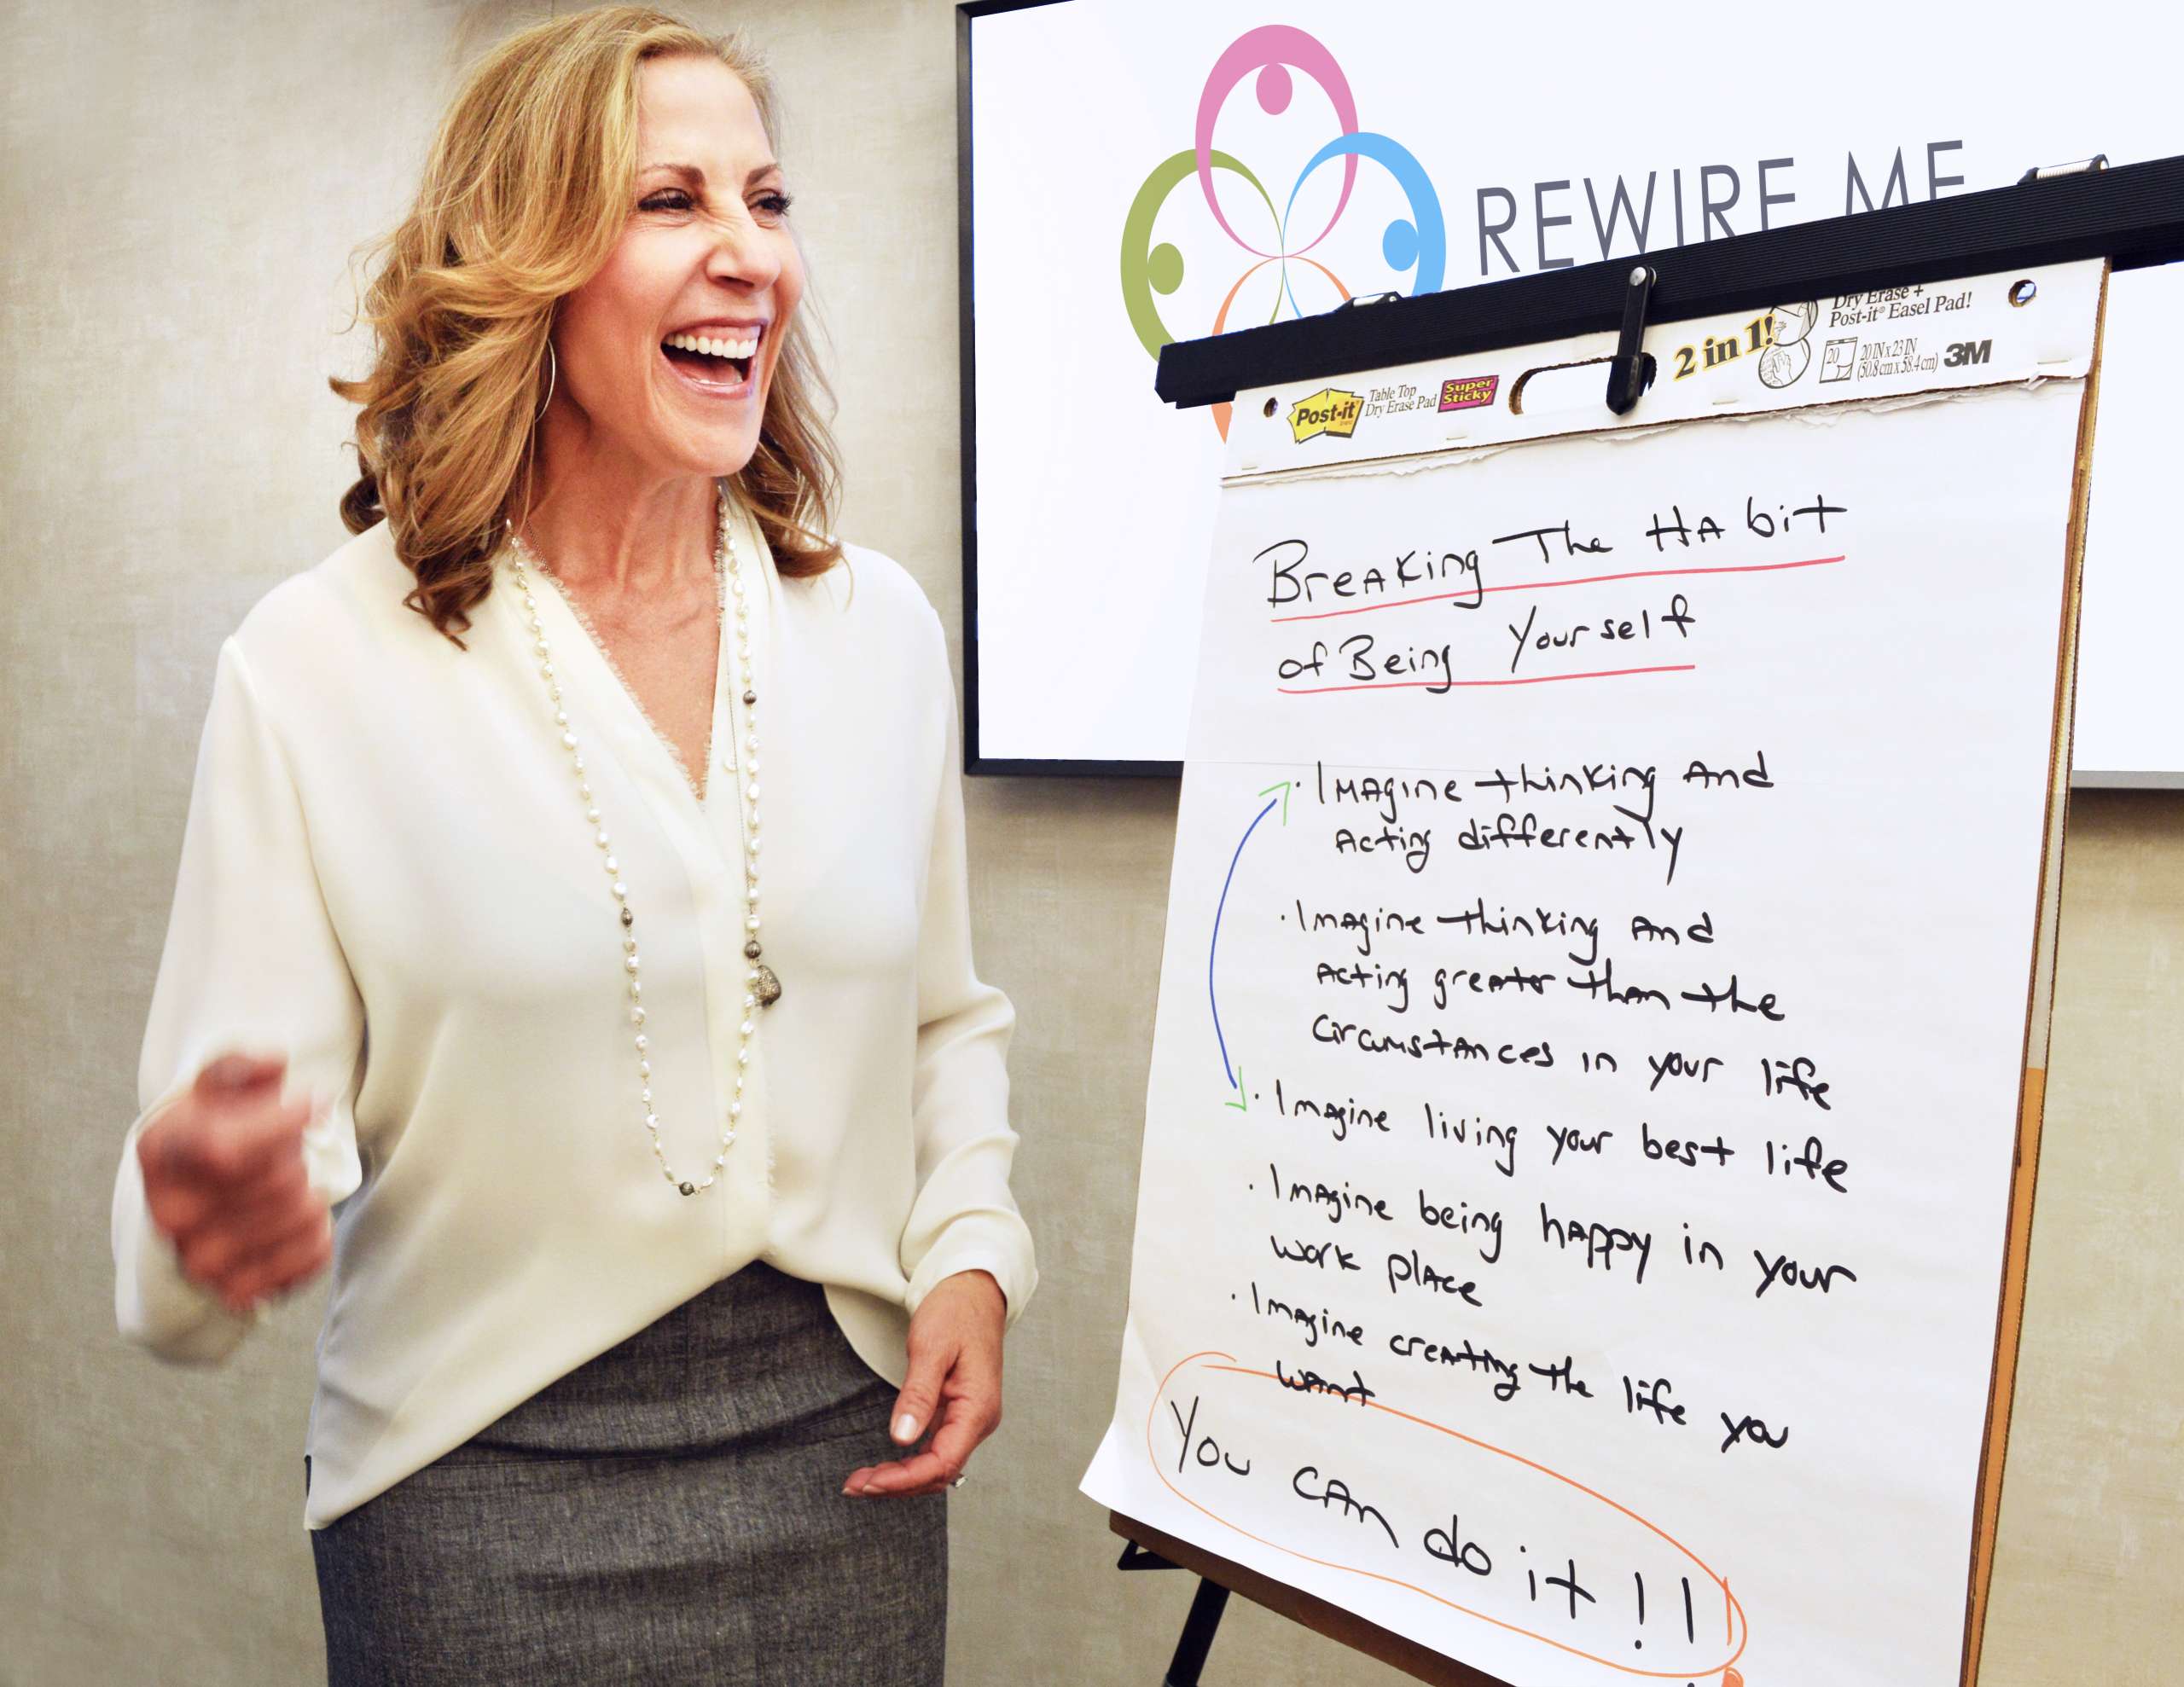 REWIRE ME
Dry Erase +
Post-it® Easel Pad!
2 in 1!
20
20 IN x 23 IN
(50.8 cm x 58.4 cm)
3M
Post-it
Table Top
Dry Erase Pad
Super
Sticky
Breaking The Habit
of Being Yourself
· Imagine thinking And
Acting differently
· Imagine thinking and
Acting greater than the
circumstances in your life
· Imagine living your best life
· Imagine being happy in your
work place
· Imagine creating the life you
want
You can do it!!